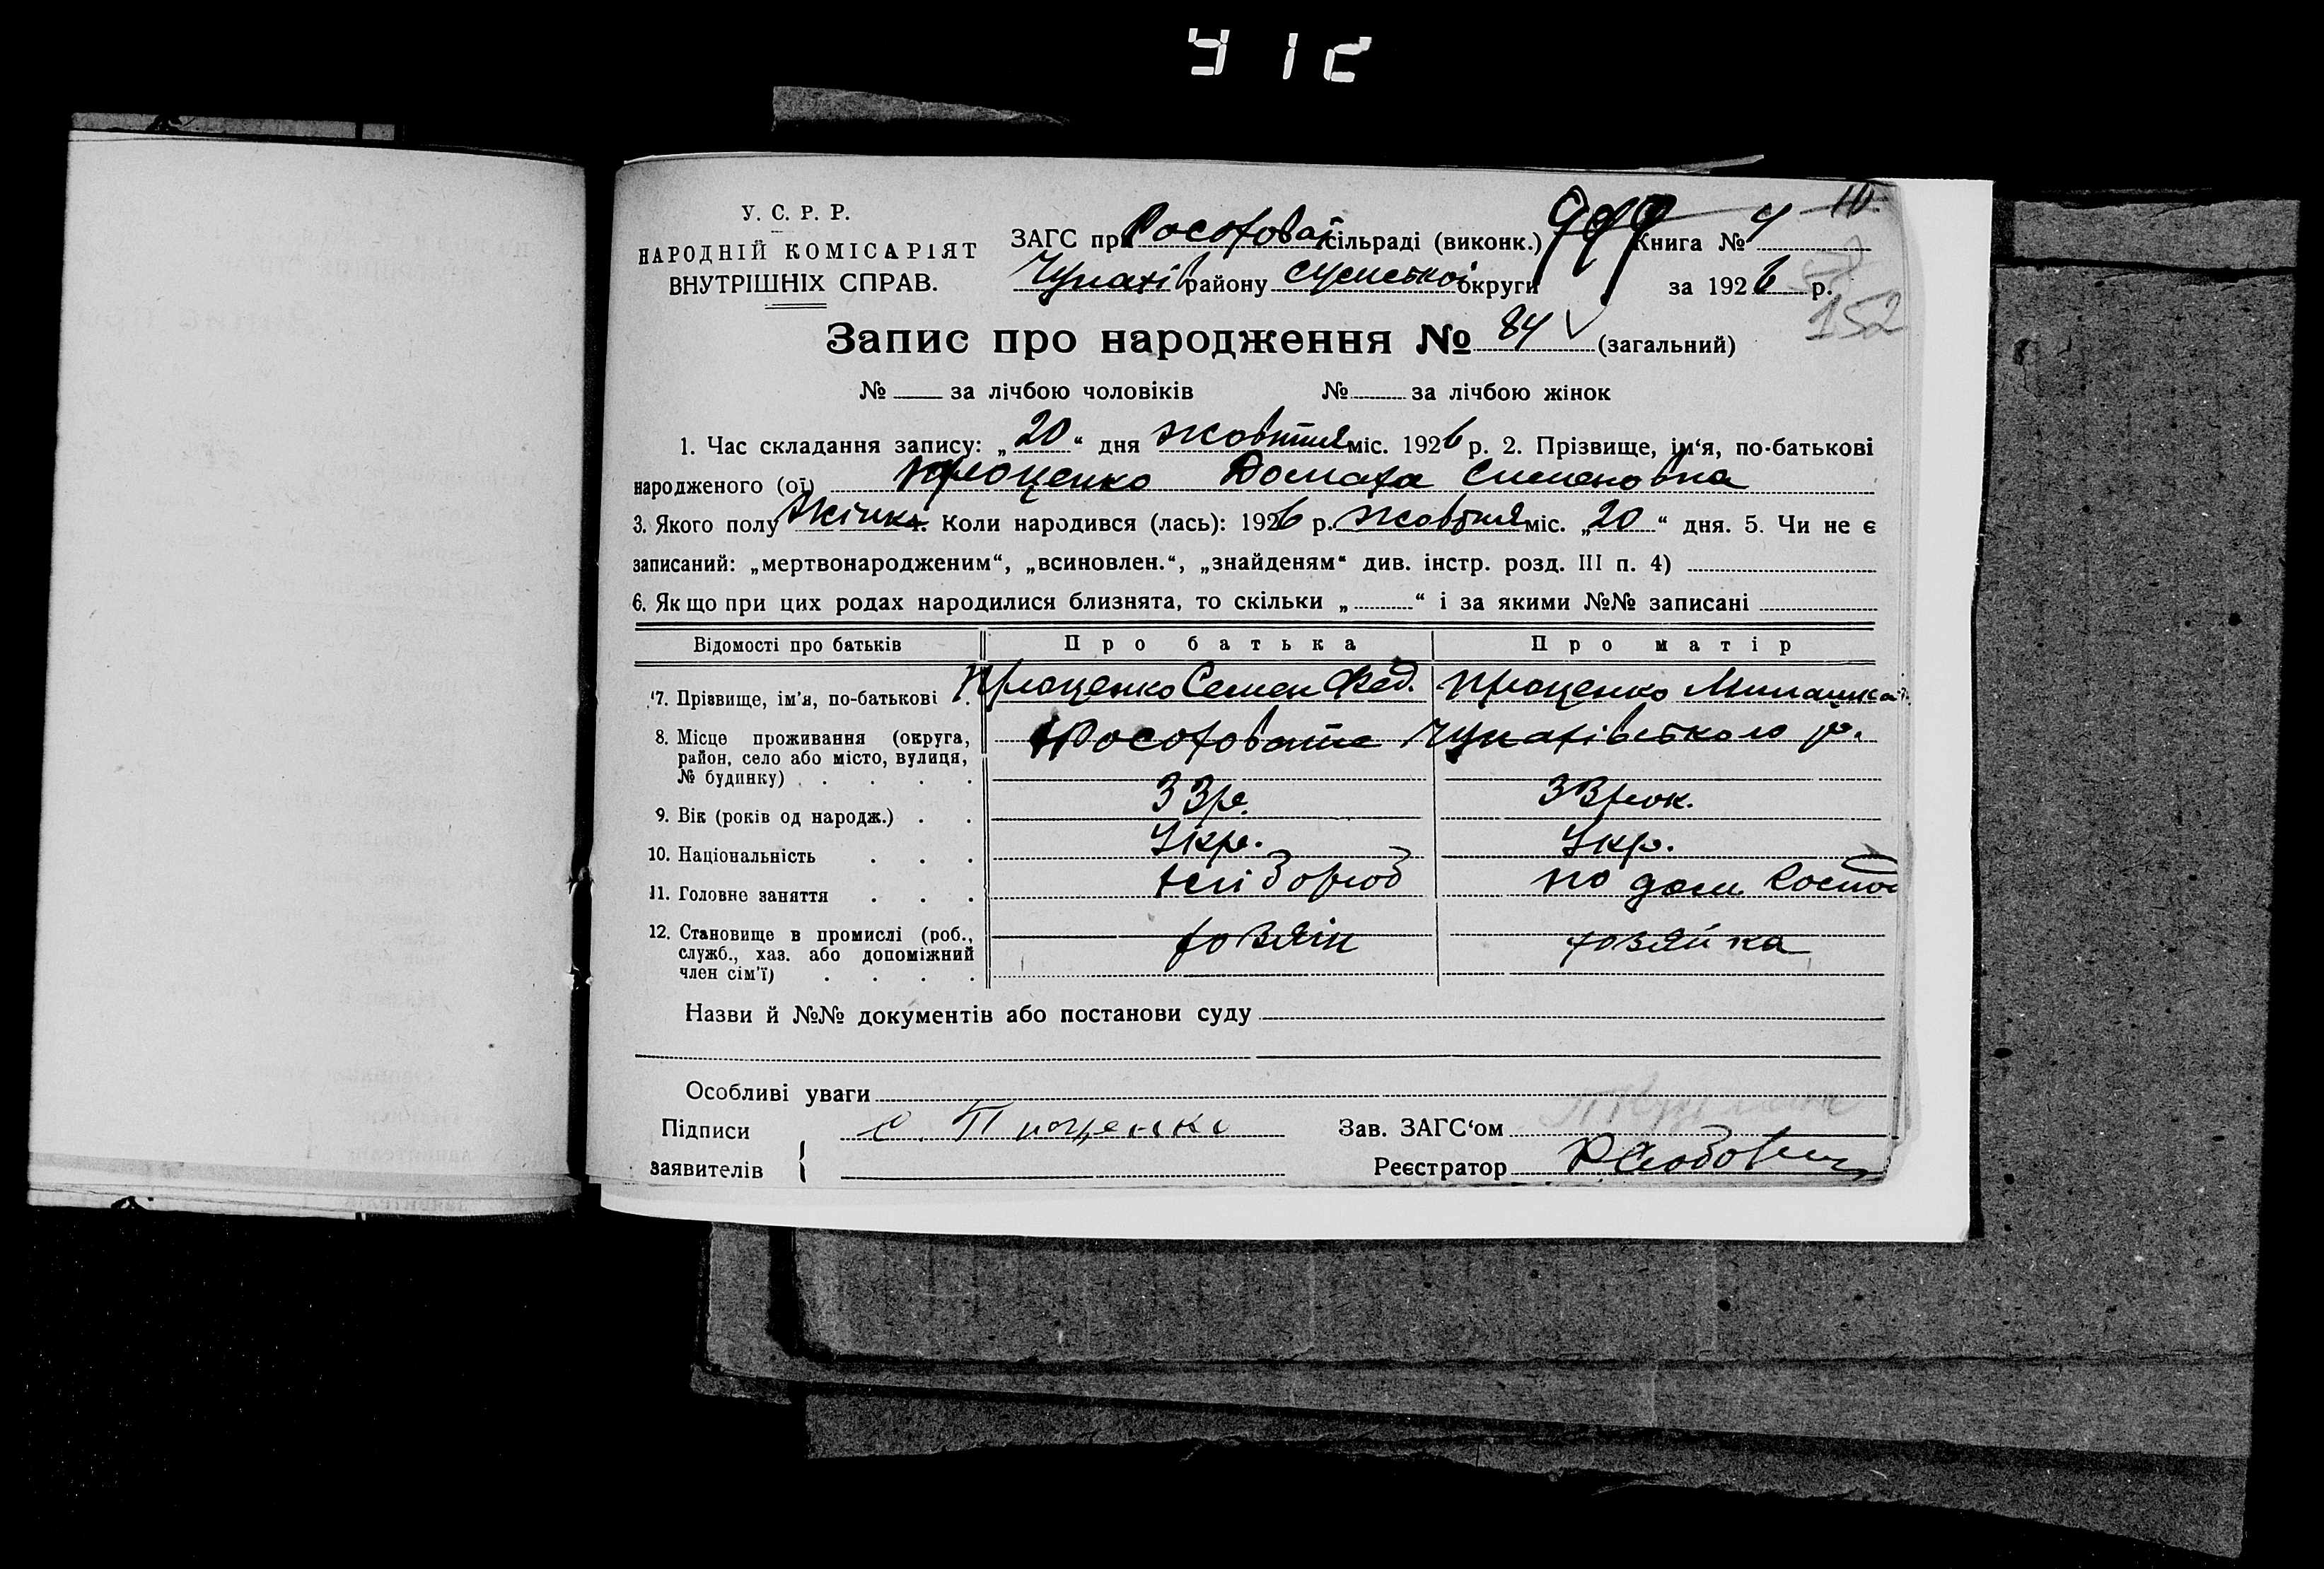 412
У. С. Р. Р.
НАРОДНІЙ КОМІСАРІЯТ
ВНУТРІШНІХ СПРАВ.
ЗАГС при Росохова сільраді (виконк.) Книга № 4
районy Сумської округи за 1926 р.
152
Запис про народження № 84 (загальний)
№ за лічбою чоловіків № за лічбою жінок
1. Час складання запису: „20“ дня жовтня міс. 1926 р. 2. Прізвище, ім‘я, по-батькові
народженого (ої) Проценко Домаха Сименовна
3. Якого полу жінка 4. Коли народився (лась): 1926 р. жовтня міс. „20“ дня. 5. Чи не є
записаний: „мертвонародженим“, „всиновлен.“, „знайденям“ див. інстр. розд. III п. 4)
6. Якщо при цих родах народилися близнята, то скільки „ “ і за якими №№ записані
Відомості про батьків Про батька Про матір
7. Прізвище, ім‘я, по-батькові Проценко Семен Фед. Проценко
8. Місце проживання (округа, Росоховата Чупахівського р.
район, село або місто, вулиця,
№ будинку)
9. Вік (років од народж.) 33 р. 33 рок.
10. Національність Укр. Укр.
11. Головне заняття хлібороб по дом. господ
12. Становище в промислі (роб., хозяін хозяйка
служб., хаз. або допоміжний
член сім‘ї)
Назви й №№ документів або постанови суду
Особливі уваги
Підписи С. Проценко Зав. ЗАГС‘ом
заявителів Реєстратор